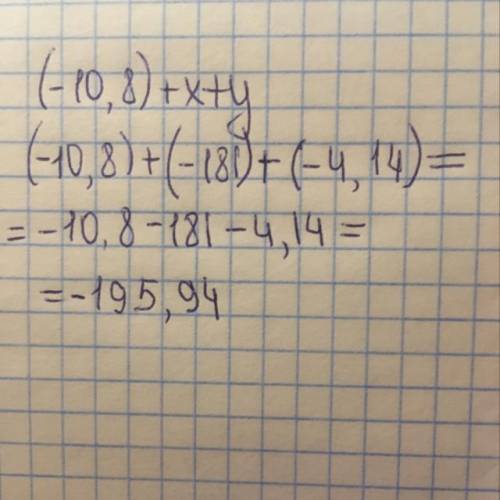 (-10,8)+x+y
(-10,8)+(-181)+(-4,14)=
=-10,8-181-4,14=
=-195,94